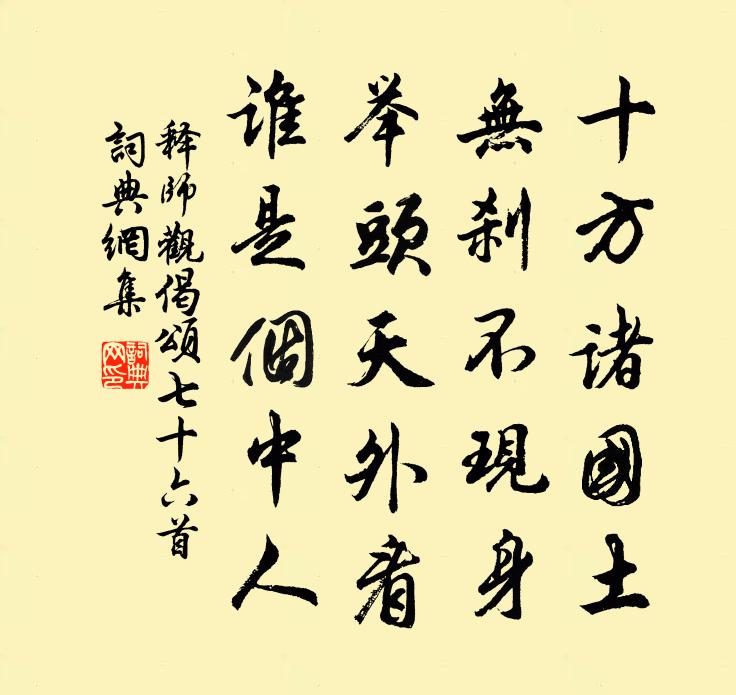 十方諸國土
無刹不現身
举頭天外看
誰是個中人
释師觀偈頌七十六首
詞典網集
詞典
网印